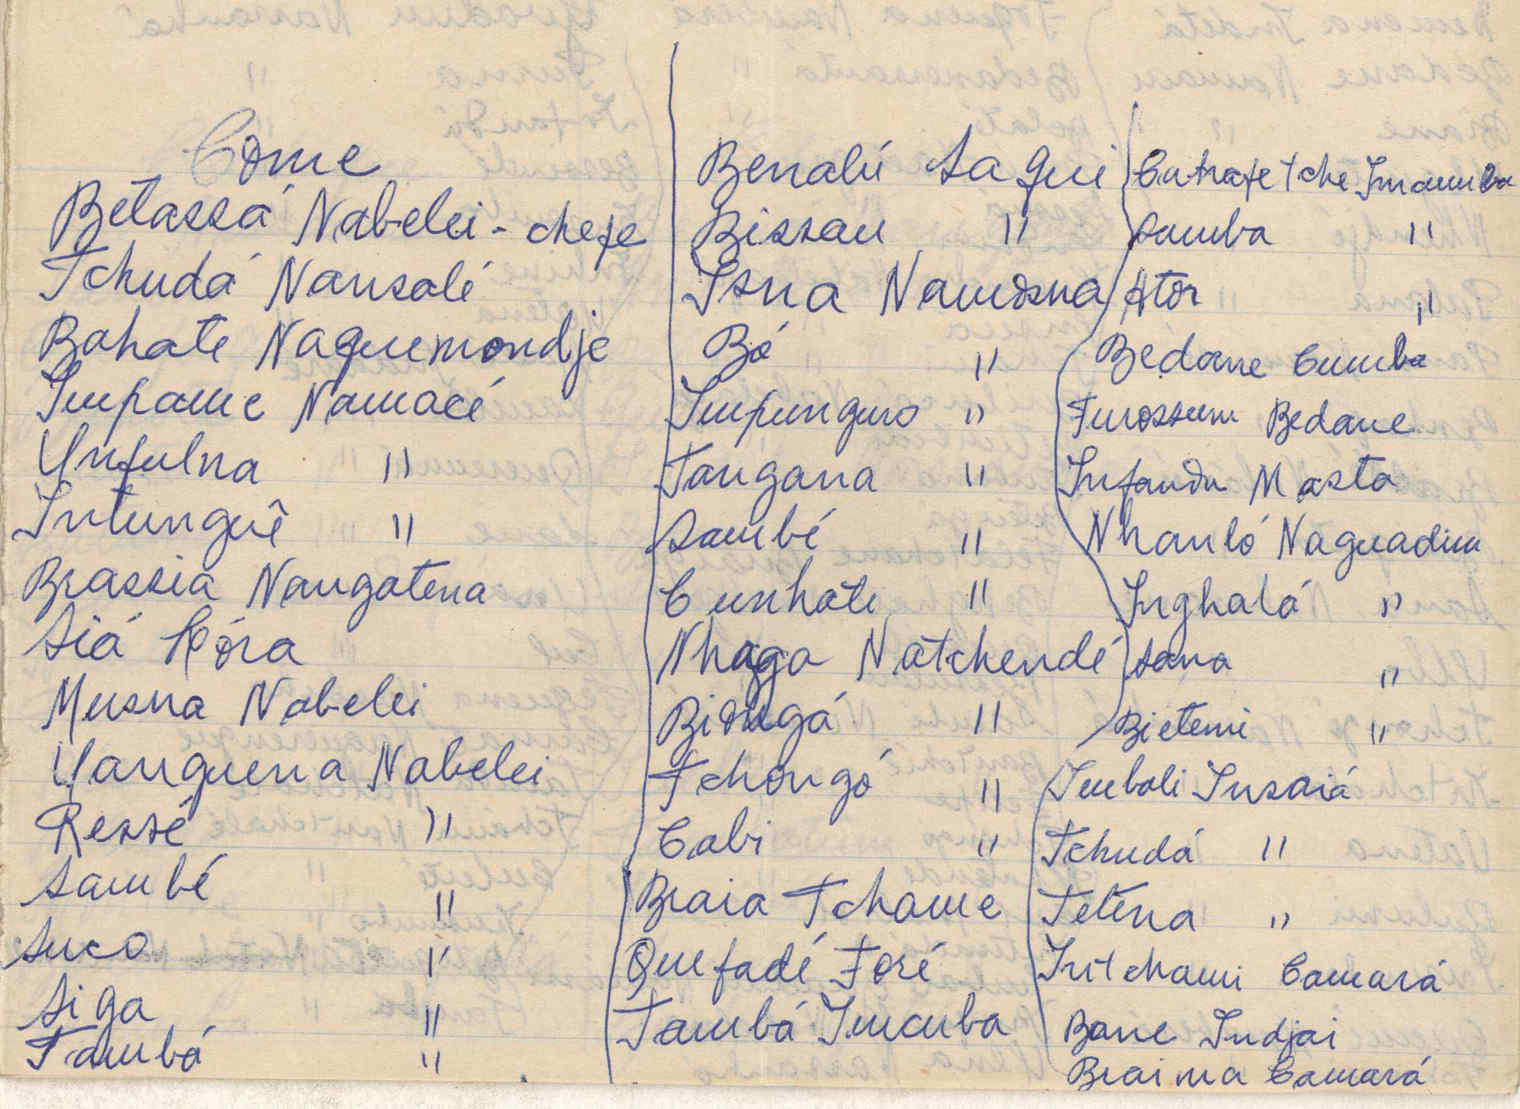 Come
Betassá Nabelei - chefe
Tchudá Nansalé
Bahate Naquemondje
Impame Namacé
Unfulna "
Intunguê "
Brassia Nangatena
Siá Córa
Musna Nabelei
Uanguena Nabelei
Ressé "
Sambé "
Suco "
Siga "
Tambá "
Benalú Sa Qui
Bissau "
Isna Namosna
Bó "
Impunguro "
Tangana "
Sambé "
Cunhate "
Nhaga Natchendé
Bidngá "
Tchongó "
Cabi "
Braia Tchame
Quefadé Foré
Tambá Imcuba
Catrafe Tche Imamba
Samba "
Ator "
Bedane Cumba
Furossum Bedane
Infandu Masta
Nhanló Naguadim
Inghalá "
Sana "
Bietemi "
Imbali Insaiá
Tchudá "
Tetena "
Intchami Camará
Bane Indjai
Braima Camará